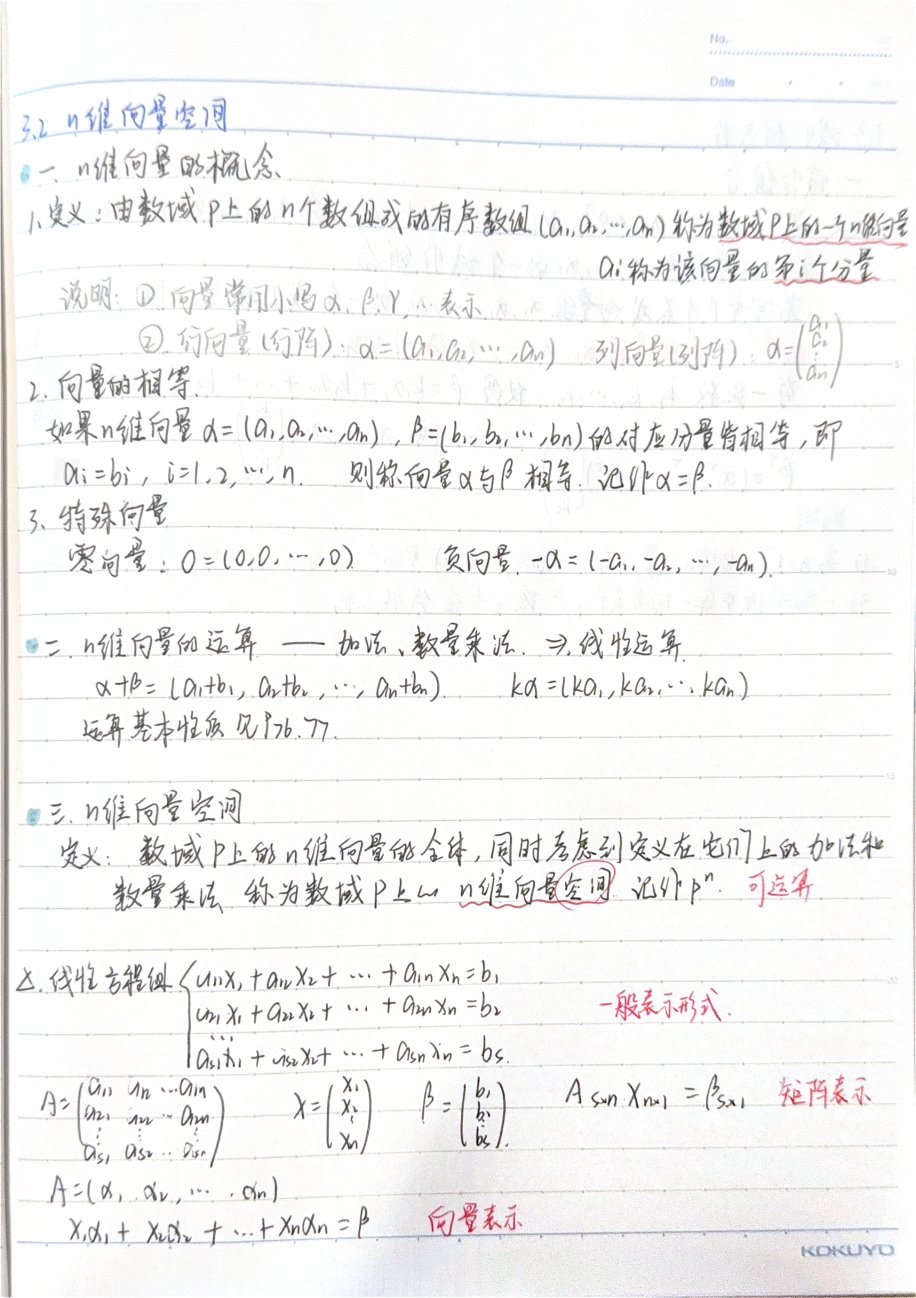 No.
Date
3.2 n维向量空间
一、n维向量的概念
1、定义：由数域P上的n个数组成的有序数组(a₁,a₂,…,aₙ)称为数域P上的一个n维向量
aᵢ称为该向量的第i个分量
说明：① 向量常用小写α、β、γ、表示
②、行向量(行阵)：α=(a₁,a₂,…,aₙ) 列向量(列阵)：α=(a₁ a₂ ⋮ aₙ)
5
2、向量的相等
如果n维向量α=(a₁,a₂,…,aₙ)，β=(b₁,b₂,…,bₙ)的对应分量皆相等，即
aᵢ=bᵢ，i=1,2,…,n. 则称向量α与β相等. 记作α=β.
3、特殊向量
零向量：0=(0,0,…,0) 负向量 -α=(-a₁,-a₂,…,-aₙ).
10
二、n维向量的运算 —— 加法、数量乘法. ⇒ 线性运算
α+β=(a₁+b₁, a₂+b₂, …, aₙ+bₙ). kα=(ka₁,ka₂,…,kaₙ)
运算基本性质见P76.77.
15
三、n维向量空间
定义：数域P上的n维向量的全体，同时考虑到定义在它们上的加法和
数量乘法 称为数域P上的 n维向量空间 记作Pⁿ. 可运算
△. 线性方程组 { a₁₁x₁+a₁₂x₂+…+a₁ₙxₙ=b₁
a₂₁x₁+a₂₂x₂+…+a₂ₙxₙ=b₂ 一般表示形式.
…
aₛ₁x₁+aₛ₂x₂+…+aₛₙxₙ=bₛ.
A=(a₁₁ a₁₂ … a₁ₙ a₂₁ a₂₂ … a₂ₙ ⋮ ⋮ ⋮ aₛ₁ aₛ₂ … aₛₙ) X=(x₁ x₂ ⋮ xₙ) β=(b₁ b₂ ⋮ bₛ). Aₛₓₙ Xₙₓ₁=βₛₓ₁ 矩阵表示
A=(α₁, α₂, …, αₙ)
x₁α₁+x₂α₂+…+xₙαₙ=β 向量表示
KOKUYO